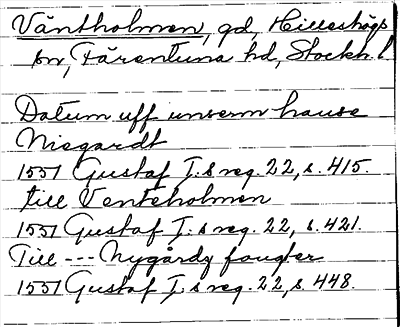 Väntholmen, gd, Hilleshögs
sn, Färentuna hd, Stockh. l.
Datum uff unserm hause
Niegardt
1551 Gustaf I:s reg. 22, s. 415.
till Venteholmen
1551 Gustaf I:s reg. 22, s. 421.
Till --- Nygårdz fougter
1551 Gustaf I:s reg. 22, s. 448.